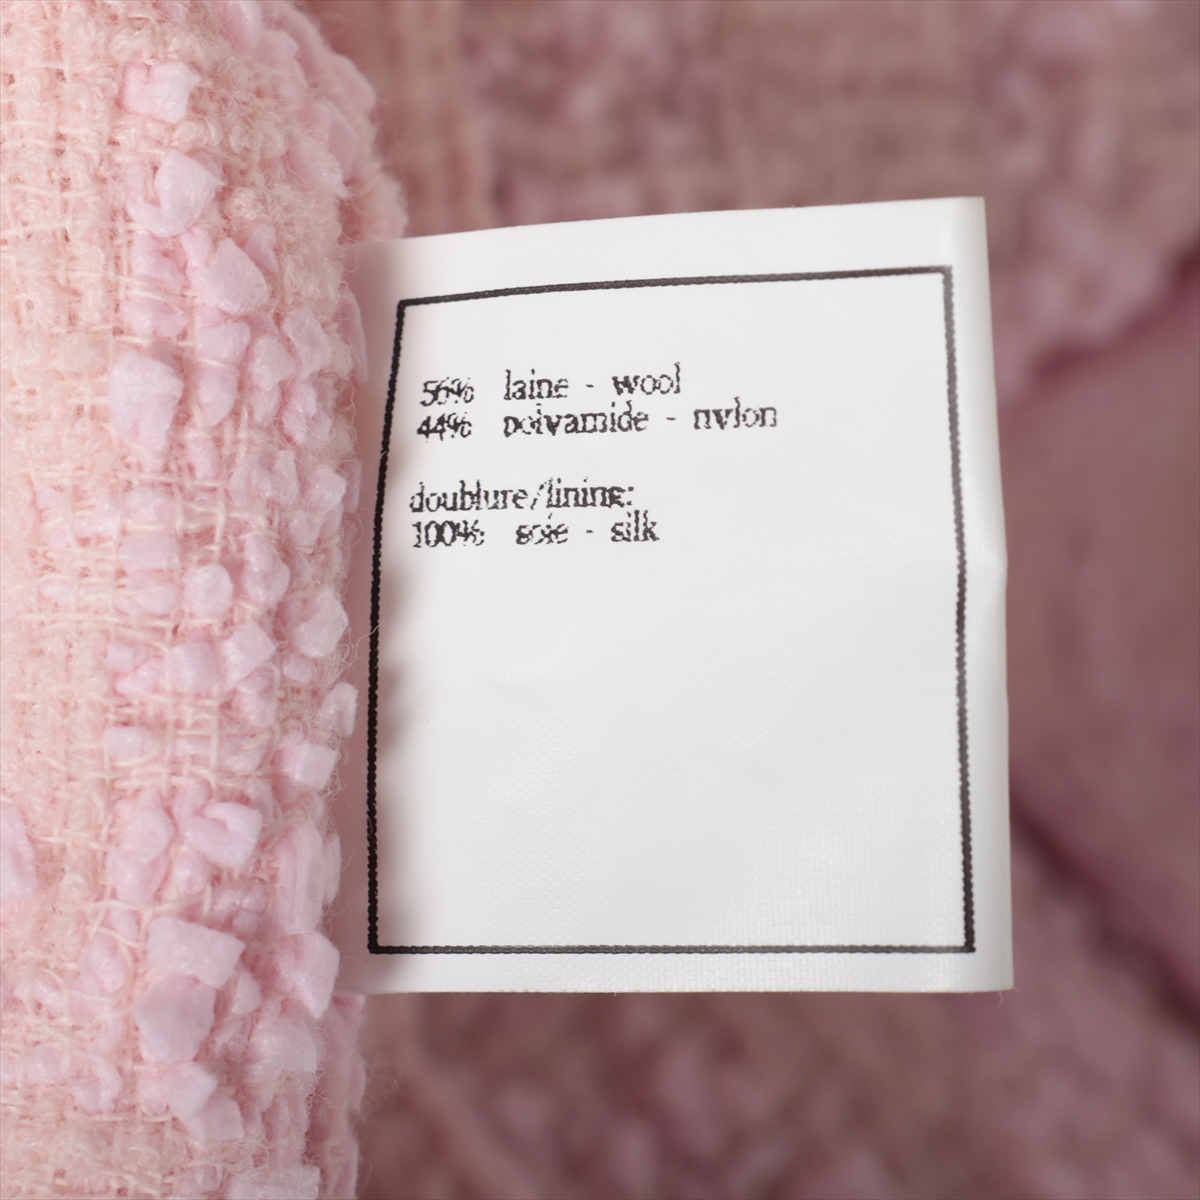 56% laine - wool
44% polyamide - nylon
doublure/lining:
100% soie - silk